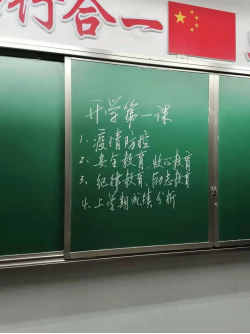 行合一
开学第一课
1、疫情防控
2、安全教育、收心教育
3、纪律教育、励志教育
4、上学期成绩分析